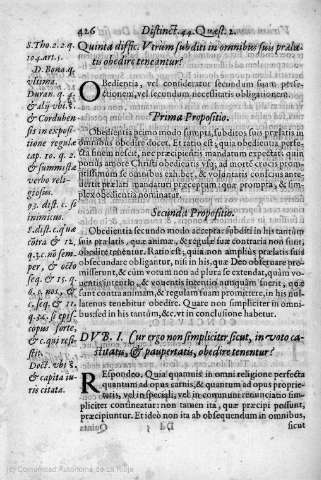 426 Distinct. 44. Quæst. 2.
S. Tho. 2. 2. q.
104. art. 5.
D. Bona. q.
vltima.
Duran. q. 4.
& alij vbi s.
& Corduben
sis in expositione
regulæ
cap. 10. q. 2.
& summistæ
verbo religiosus.
93. dist. c. si
inimicus.
8. dist. c. quæ
cõtra & 12,
q. 3. c. nõ semper,
& octo
seq. & 15. q.
6. c. nos, &
c. seq. & 11.
q. 3. c. si episcopus
forte,
& c. qui resistit.
Doct. vbi s.
& capita iuris
citata.
Quinta diffic. Vtrum subditi in omnibus suis prælatis
obedire teneantur?
Obedientia, vel consideratur secundum suam perfectionem,
vel secundum necessitatis obligationem.
Prima Propositio.
Obedientia primo modo sumpta, subditos suis prælatis in
omnibus obedire docet. Et ratio est; quia obedientia perfecta
finem nescit, nec præcipientis mandatum expectat: quin
potius amore Christi obedientis vsq; ad mortẽ crucis promptissimum
se omnibus exhibet, & voluntatis conscius antevertit
prælati mandatum præceptum: quæ prompta, & simplex
obedientia nominatur.
Secunda Propositio.
Obedientia secundo modo accepta: subditi in his tantùm
suis prælatis, quæ animæ, & regulæ suæ contraria non sunt,
obedire tenentur. Ratio est; quia non amplius prælatis suis
obsecundare obligantur, nisi in his, quæ Deo obseruare promisserunt,
& cùm votum non ad plura se extendat, quàm vouentis
intentio, & vouentis intentio nunquam fuerit, quæ
sunt contra animam, & regulã suam promittere, in his nullatenus
tenebitur obedire. Quare non simpliciter in omnibus:
sed in his tantùm, &c. vt in conclusione habetur.
DVB. I. Cur ergo non simpliciter sicut, in voto castitatis,
& paupertatis, obedire tenentur?
Respondeo. Quia quamuis in omni religione perfecta
quantum ad opus carnis, & quantum ad opus proprietatis,
vel in speciali, vel in communi renunciatio simpliciter
contineatur: non tamen ita, quæ præcipi possunt,
præcipiuntur. Et ideò non ita ab obsequendum in omnibus,
Dd 5 sicut
(c) Comunidad Autónoma de La Rioja